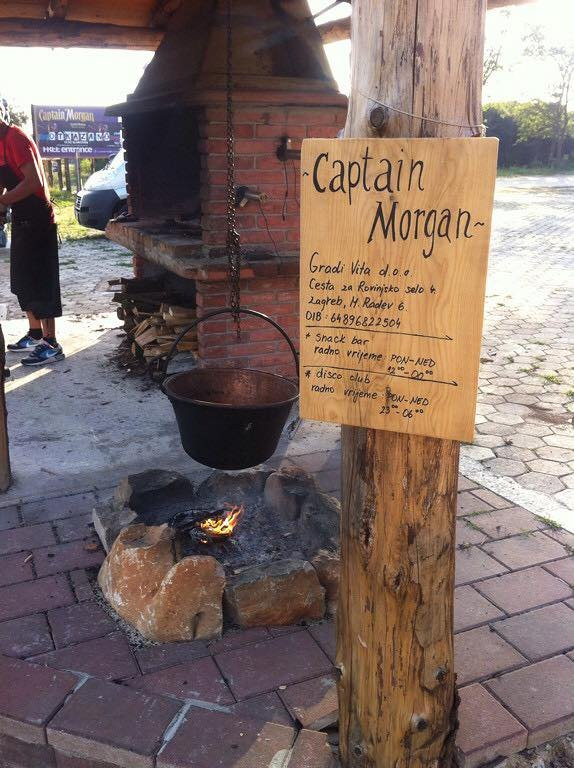 Captain Morgan
OTKAZANO
FREE entrance
~Captain
Morgan~
Gradi Vita d.o.o
Cesta za Rovinjsko selo 4.
Zagreb, H. Radev 6.
OIB: 64896822504
* snack bar
radno vrijeme: PON-NED
12⁰⁰-00⁰⁰
* disco club
radno vrijeme: PON-NED
23⁰⁰-06⁰⁰